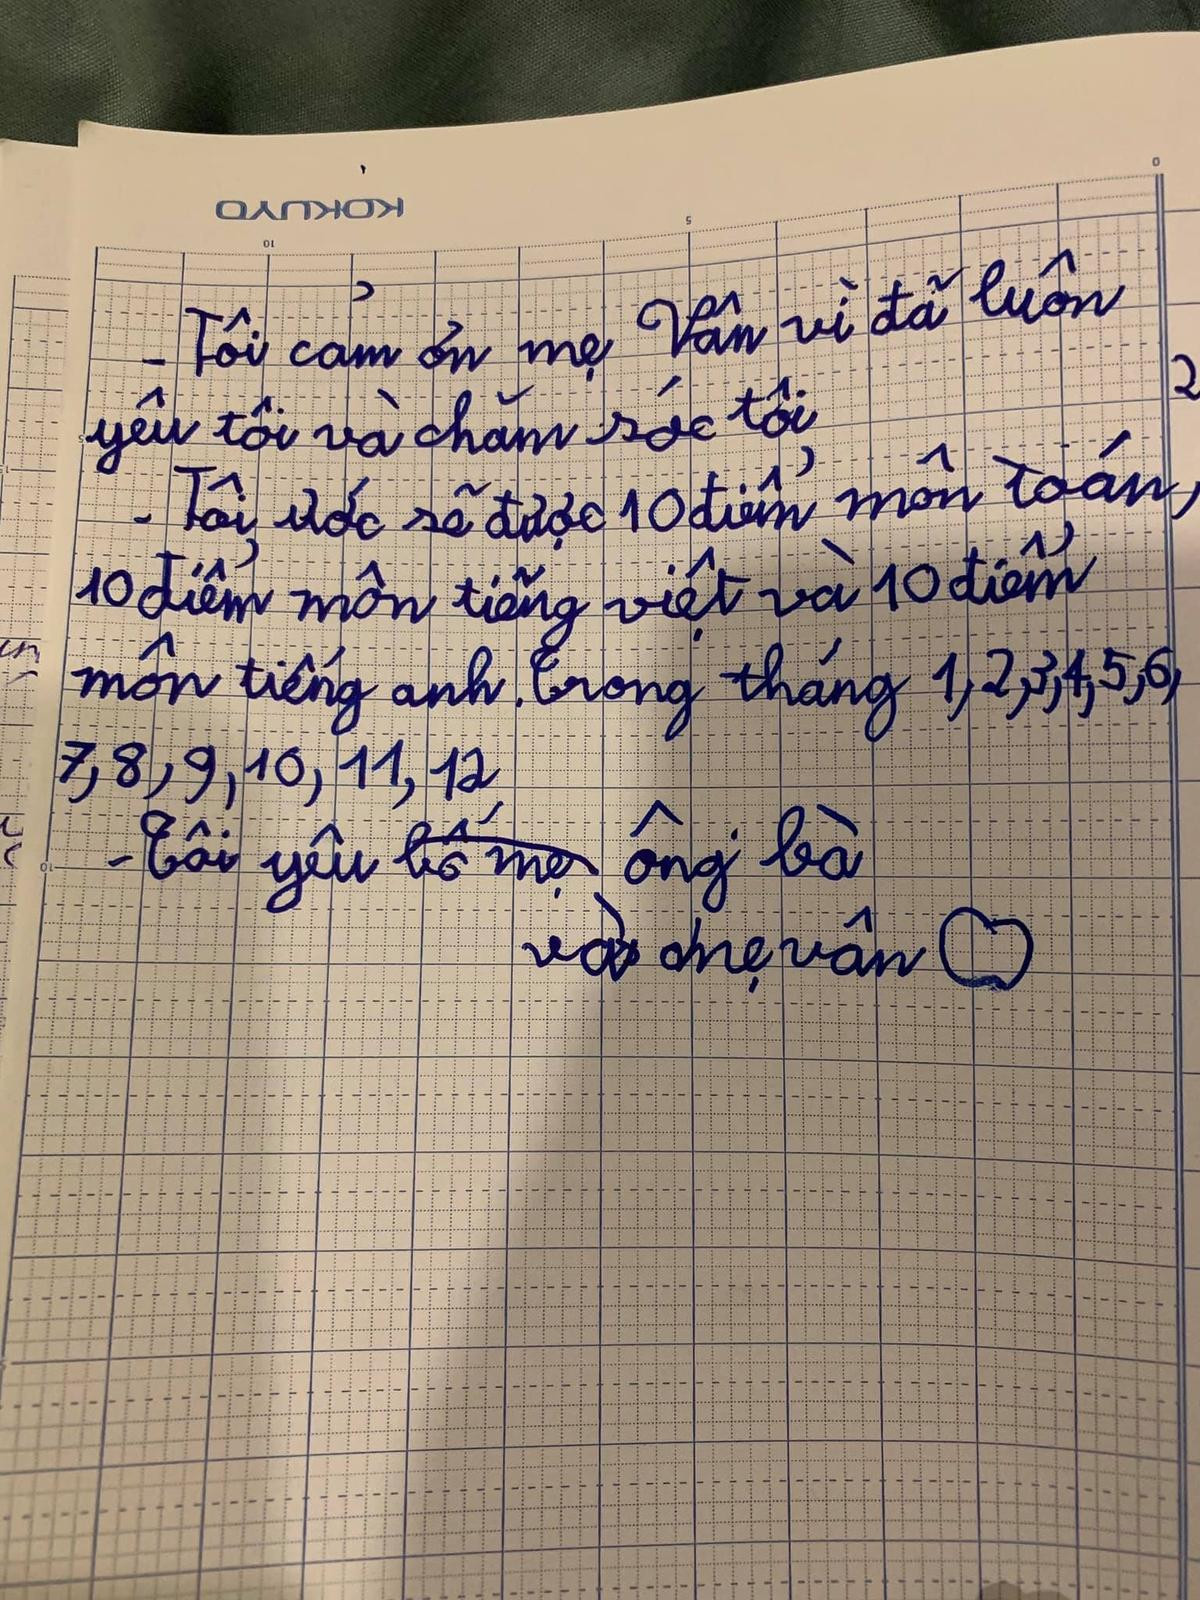 KOKUYO
10 5 0
- Tôi cảm ơn mẹ Vân vì đã luôn
yêu tôi và chăm sóc tôi
2
- Tôi ước sẽ được 10 điểm môn toán,
10 điểm môn tiếng việt và 10 điểm
môn tiếng anh. Trong tháng 1, 2, 3, 4, 5, 6,
7, 8, 9, 10, 11, 12
- Tôi yêu bố mẹ ông bà
10
và mẹ vân